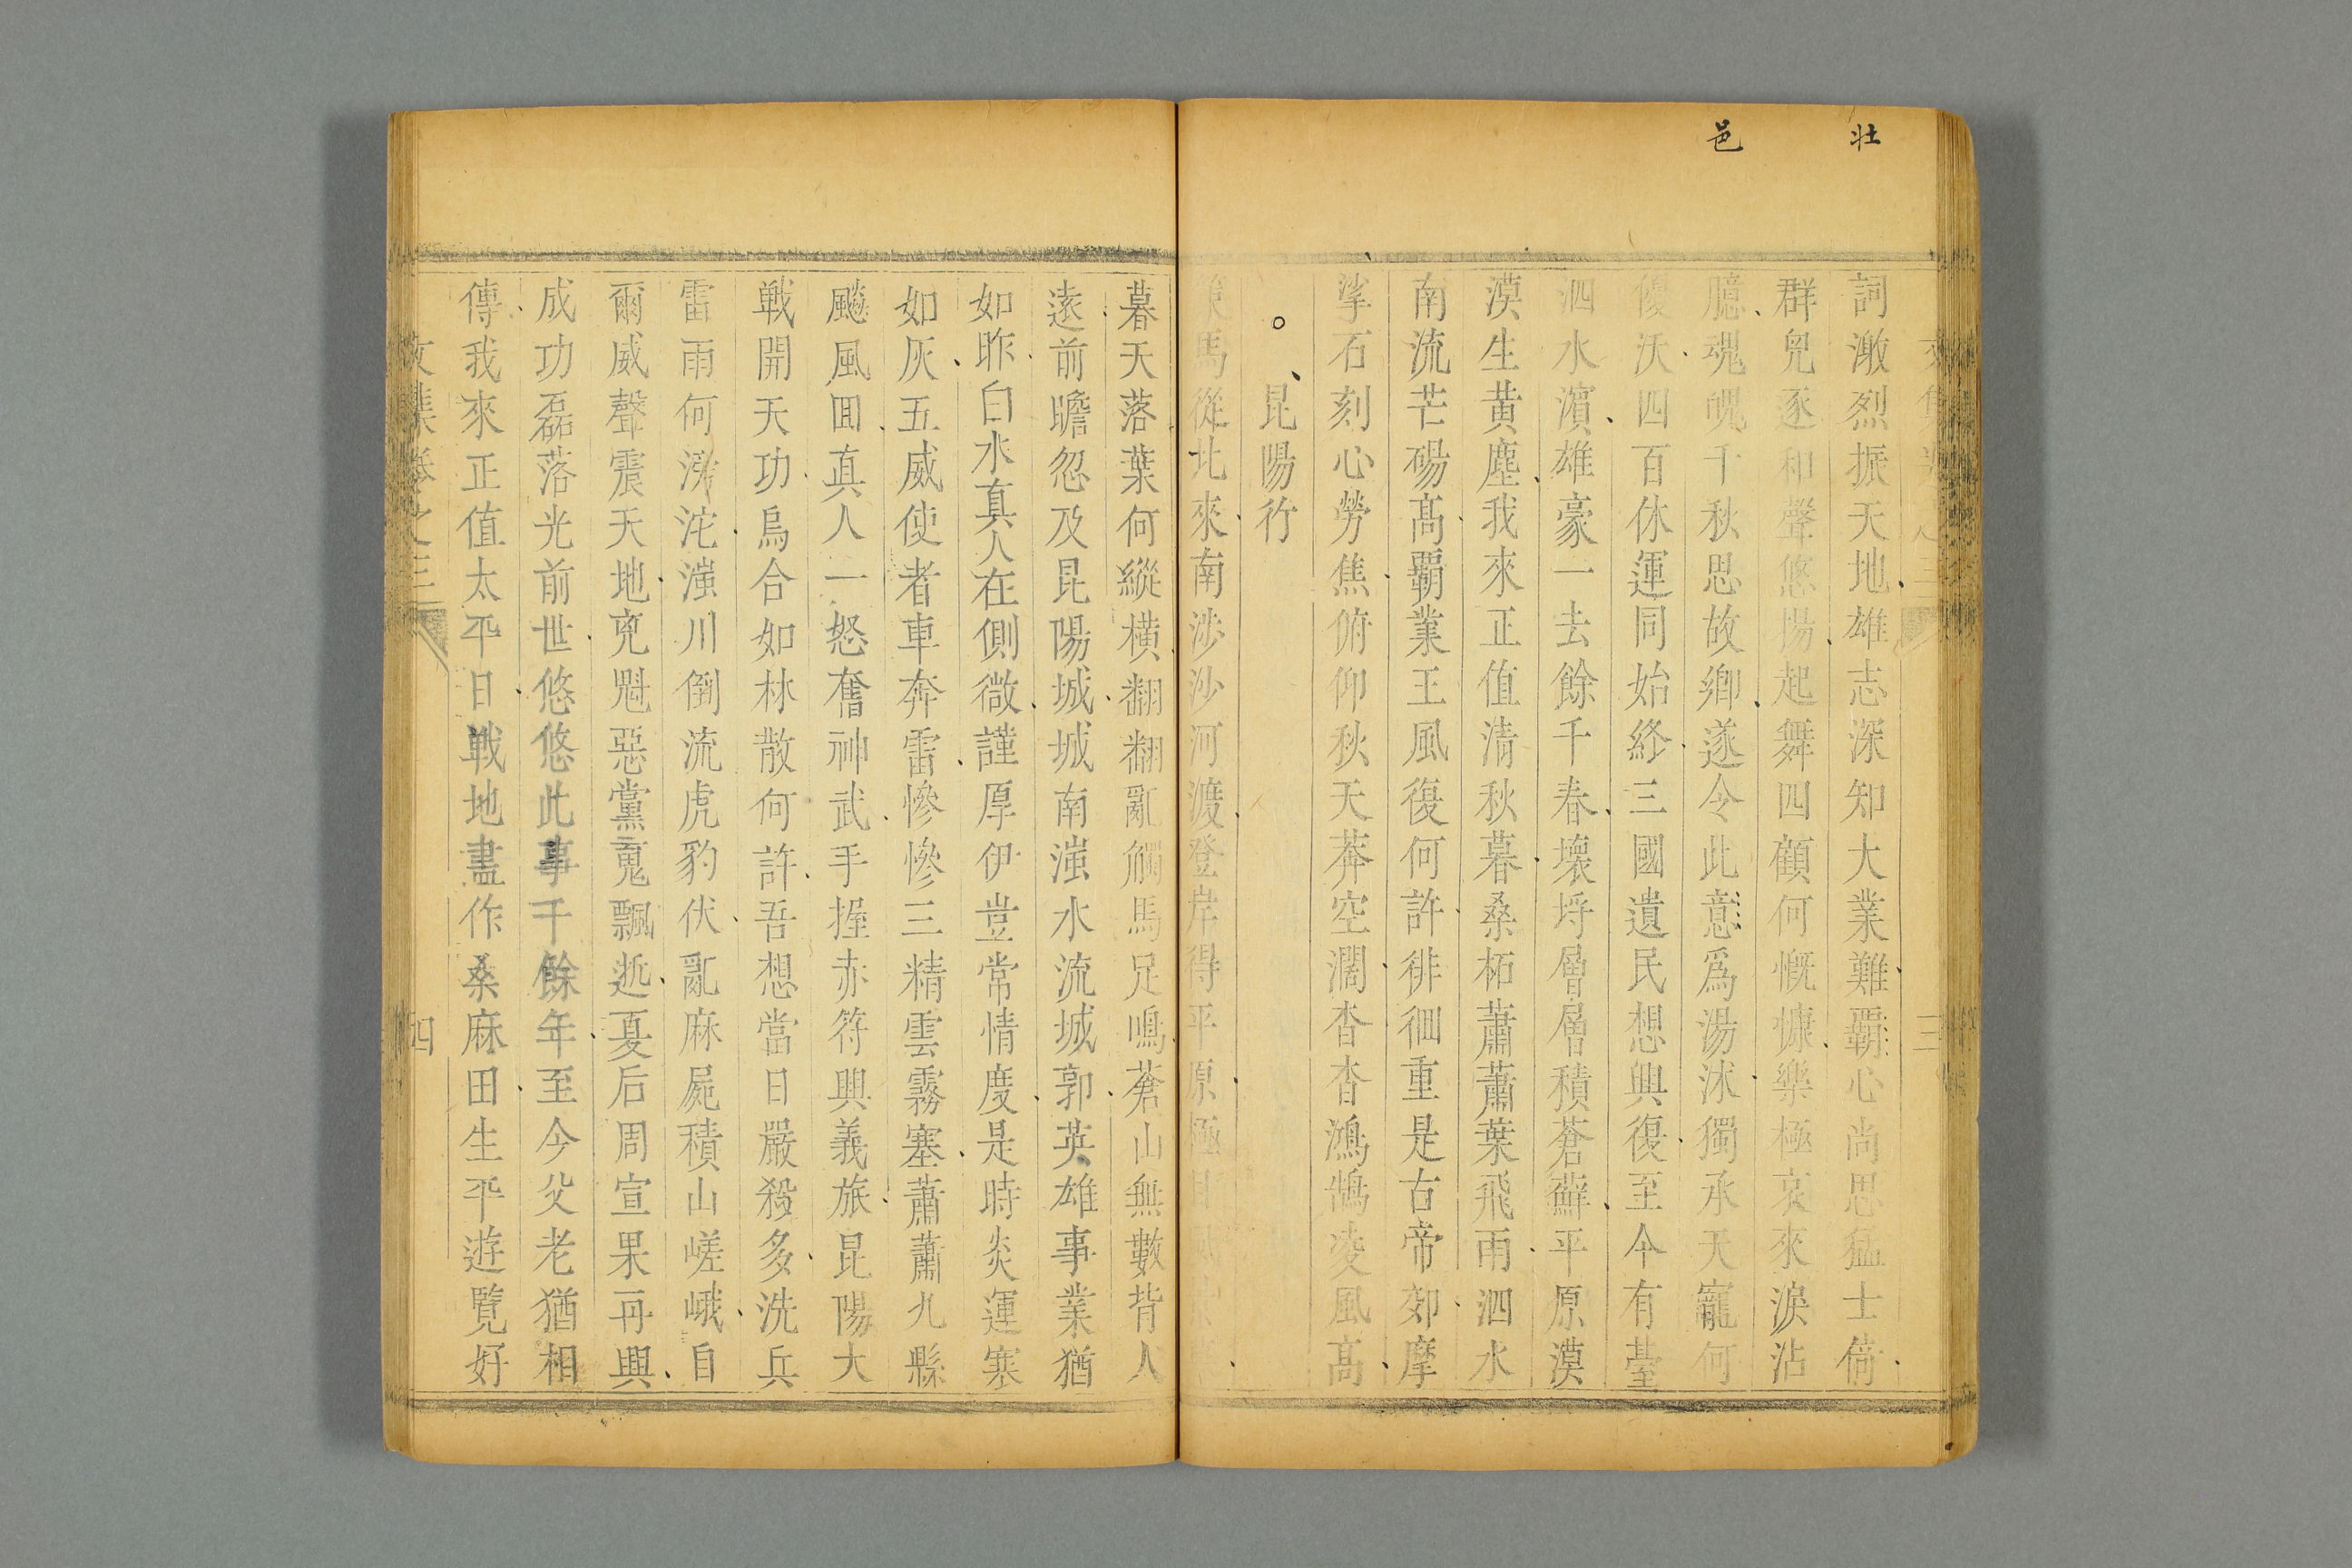 壯
邑
詞激烈振天地雄志深知大業難覇心尚思猛士倚
群兒逐和聲悠陽起舞四顧何慨慷樂極哀來淚沾
臆魂魄千秋思故鄉遂令此意爲湯沐獨承天寵何
優沃四百休運同始終三國遺民想興復至今有臺
泗水濵雄豪一去餘千春壞埒層層積蒼蘚平原漠
漠生黃塵我來正值清秋暮桑柘蕭蕭葉飛雨泗水
南流芒碭髙覇業王風復何許徘徊重是古帝郊摩
挲石刻心勞焦俯仰秋天莽空濶杳杳鴻鵠凌風髙
昆陽行
馬從北來南渉沙河渡登岸得平原極目
暮天落葉何縱橫翻翻亂觸馬足鳴蒼山無數背人
逺前瞻忽及昆陽城城南滍水流城郭英雄事業猶
如昨白水真人在側微謹厚伊豈常情度是時炎運塞
如灰五威使者車奔雷慘慘三精雲霧塞蕭蕭九縣
飈風囬真人一怒奮神武手握赤符興義旅昆陽大
戦開天功烏合如林散何許吾想當日嚴殺多洗兵
雷雨何滂沱滍川倒流虎豹伏亂麻屍積山嵯峨自
爾威聲震天地兇魁惡黨䰟飄逝夏后周宣果再興
成功磊落光前世悠悠此事千餘年至今父老猶相
傳我來正值太平日戦地盡作桑麻田生平遊覧好
文集卷之三
四